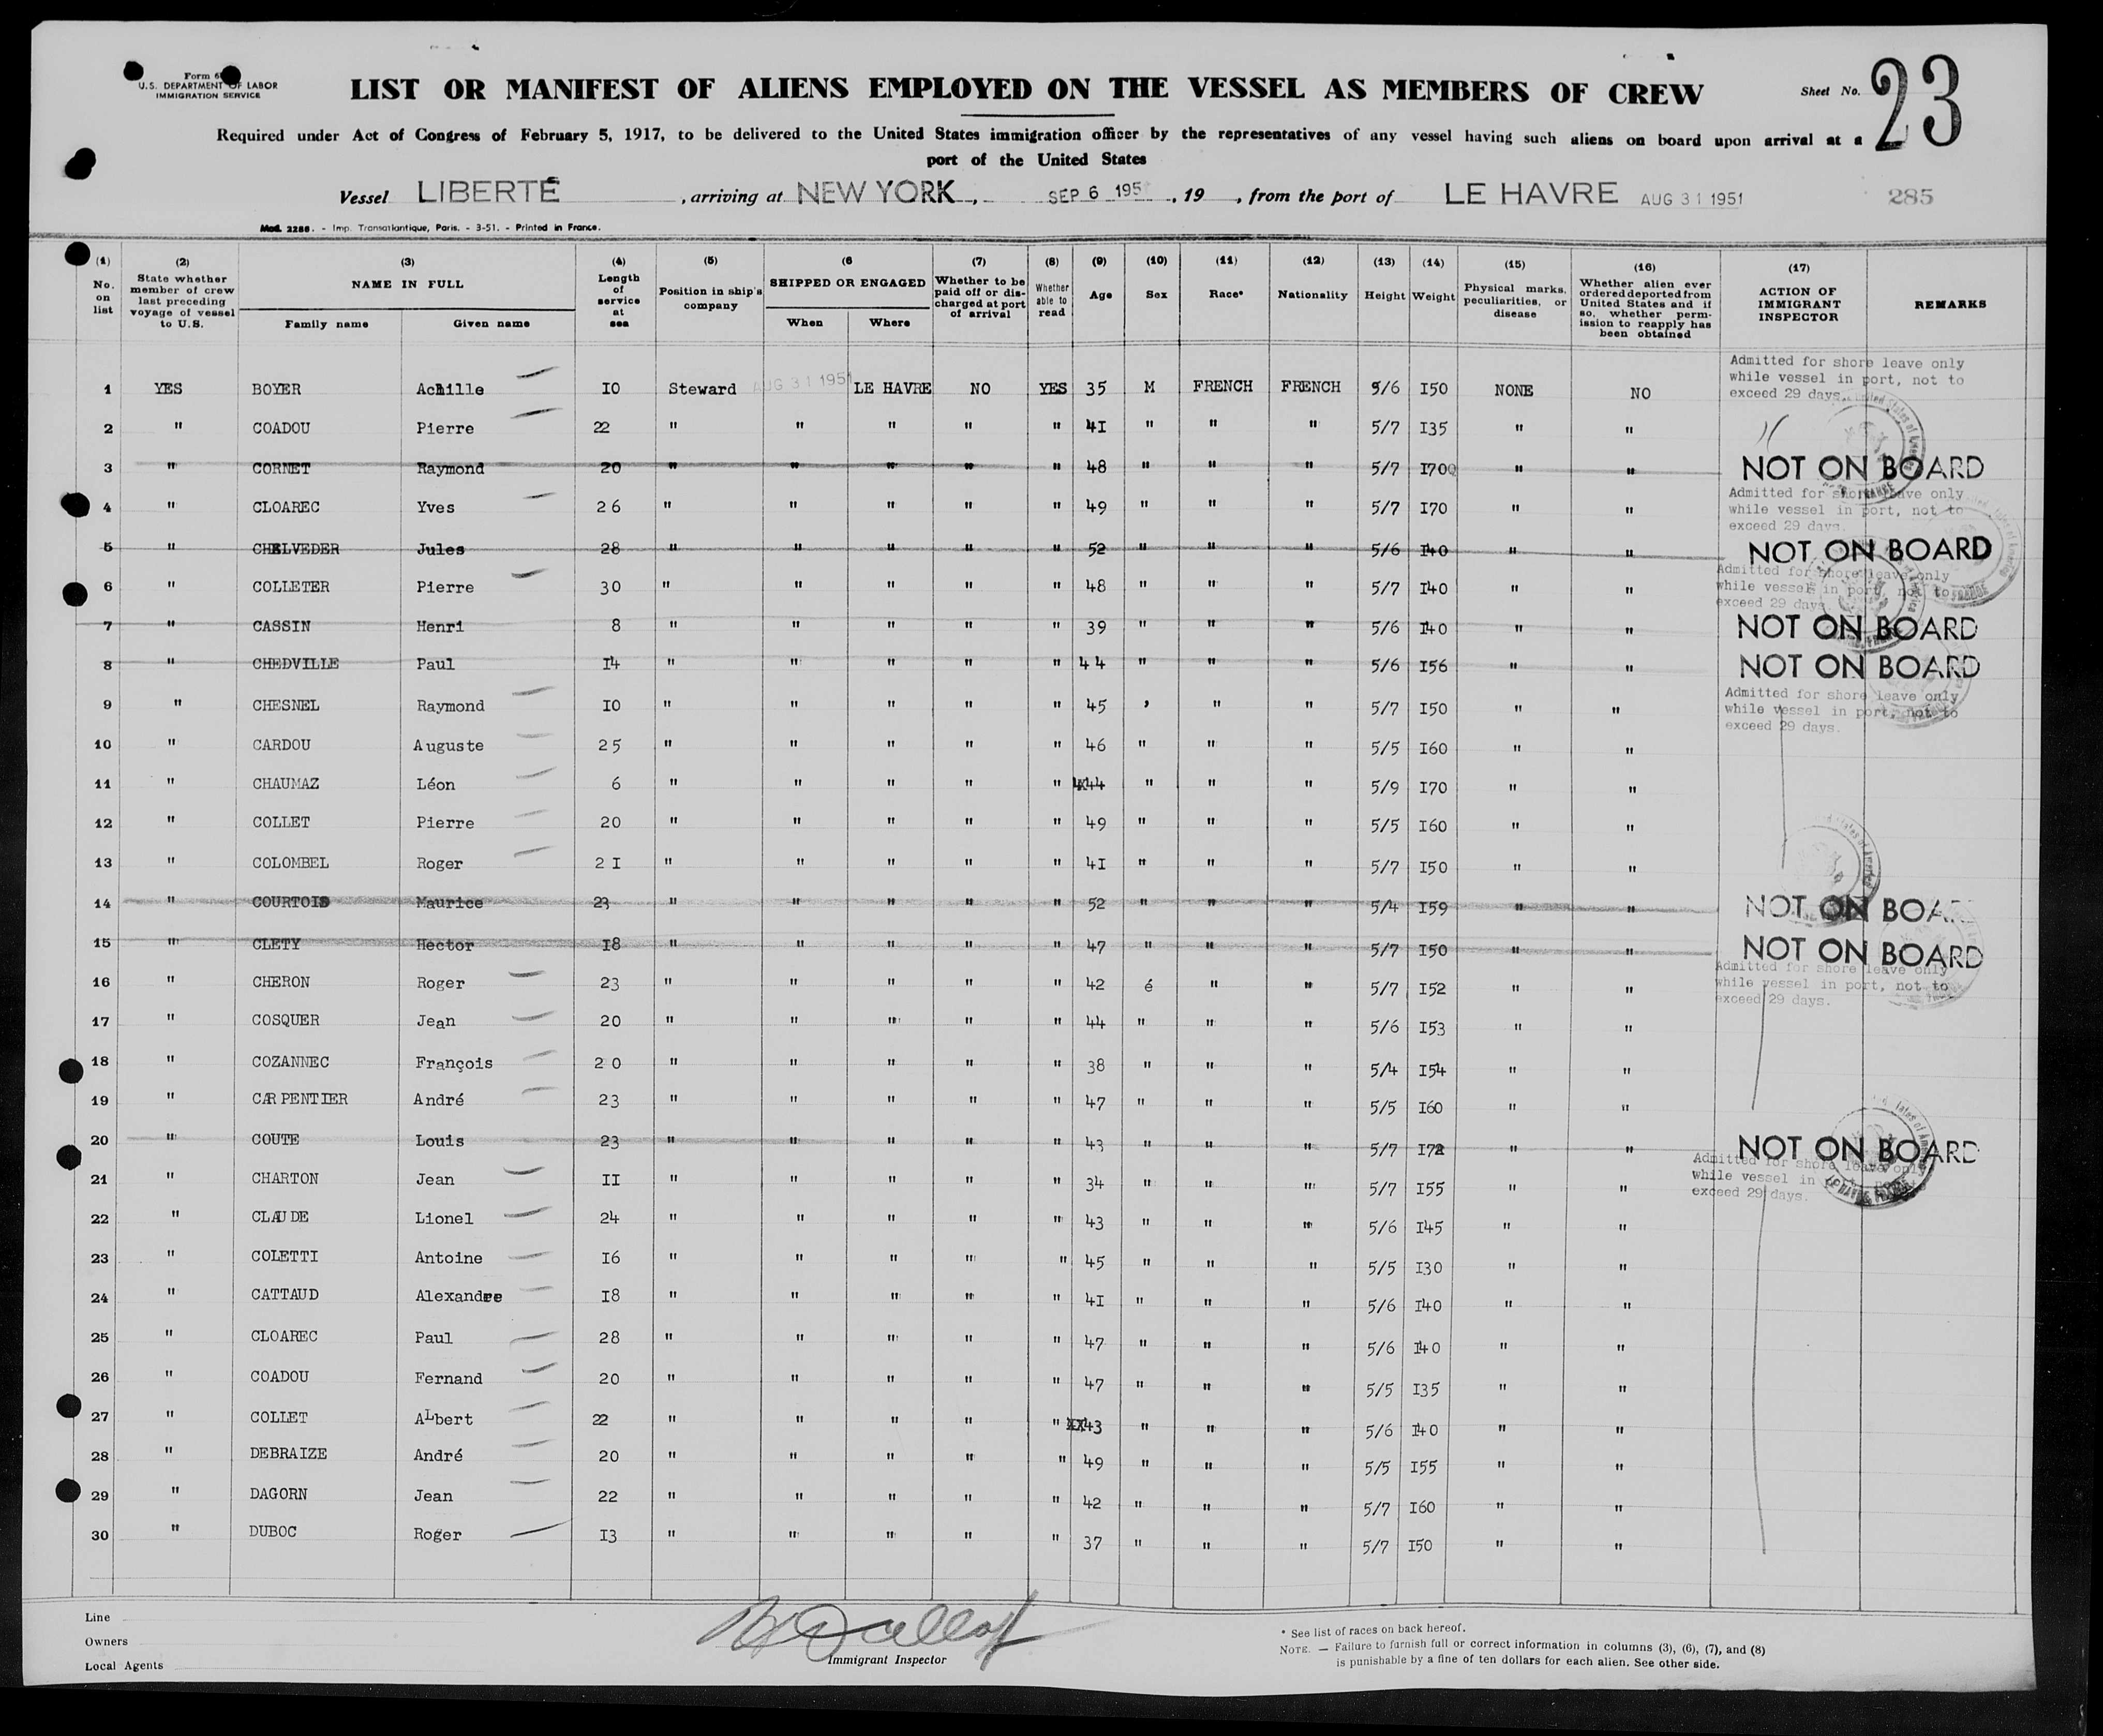 Form 6
U.S. DEPARTMENT OF LABOR
IMMIGRATION SERVICE
LIST OR MANIFEST OF ALIENS EMPLOYED ON THE VESSEL AS MEMBERS OF CREW
Sheet No. 23
Required under Act of Congress of February 5, 1917, to be delivered to the United States immigration officer by the representatives of any vessel having such aliens on board upon arrival at a
port of the United States
Vessel LIBERTÉ, arriving at NEW YORK, SEP 6 195 , 19 , from the port of LE HAVRE AUG 31 1951 285
Mod. 2286. - Imp. Transatlantique, Paris. - 3-51. - Printed in France.
(1) No. on list (2) State whether member of crew last preceding voyage of vessel to U.S. (3) NAME IN FULL Family name Given name (4) Length of service at sea (5) Position in ship's company (6 SHIPPED OR ENGAGED When Where (7) Whether to be paid off or discharged at port of arrival (8) Whether able to read (9) Age (10) Sex (11) Race* (12) Nationality (13) Height (14) Weight (15) Physical marks, peculiarities, or disease (16) Whether alien ever ordered deported from United States and if so, whether permission to reapply has been obtained (17) ACTION OF IMMIGRANT INSPECTOR REMARKS
1 YES BOYER Achille 10 Steward AUG 31 1951 LE HAVRE NO YES 35 M FRENCH FRENCH 5/6 150 NONE NO Admitted for shore leave only while vessel in port, not to exceed 29 days.
2 " COADOU Pierre 22 " " " " " 41 " " " 5/7 135 " "
3 " CORNET Raymond 20 " " " " " 48 " " " 5/7 170 " " NOT ON BOARD
4 " CLOAREC Yves 26 " " " " " 49 " " " 5/7 170 " " Admitted for shore leave only while vessel in port, not to exceed 29 days.
5 " CHELVEDER Jules 28 " " " " " 52 " " " 5/6 140 " " NOT ON BOARD
6 " COLLETER Pierre 30 " " " " " 48 " " " 5/7 140 " " Admitted for shore leave only while vessel in port, not to exceed 29 days
7 " CASSIN Henri 8 " " " " " 39 " " " 5/6 140 " " NOT ON BOARD
8 " CHEDVILLE Paul 14 " " " " " 44 " " " 5/6 156 " " NOT ON BOARD
9 " CHESNEL Raymond 10 " " " " " 45 ' " " 5/7 150 " " Admitted for shore leave only while vessel in port, not to exceed 29 days.
10 " CARDOU Auguste 25 " " " " " 46 " " " 5/5 160 " "
11 " CHAUMAZ Léon 6 " " " " " 44 " " " 5/9 170 " "
12 " COLLET Pierre 20 " " " " " 49 " " " 5/5 160 " "
13 " COLOMBEL Roger 21 " " " " " 41 " " " 5/7 150 " "
14 " COURTOIS Maurice 23 " " " " " 52 " " " 5/4 159 " " NOT ON BOA
15 " CLETY Hector 18 " " " " " 47 " " " 5/7 150 " " NOT ON BOARD
16 " CHERON Roger 23 " " " " " 42 é " " 5/7 152 " " Admitted for shore leave only while vessel in port, not to exceed 29 days.
17 " COSQUER Jean 20 " " " " " 44 " " " 5/6 153 " "
18 " COZANNEC François 20 " " " " " 38 " " " 5/4 154 " "
19 " CARPENTIER André 23 " " " " " 47 " " " 5/5 160 " "
20 " COUTE Louis 23 " " " " " 43 " " " 5/7 172 " " NOT ON BOARD
21 " CHARTON Jean 11 " " " " " 34 " " " 5/7 155 " " Admitted for shore leave only while vessel in exceed 29 days.
22 " CLAUDE Lionel 24 " " " " " 43 " " " 5/6 145 " "
23 " COLETTI Antoine 16 " " " " " 45 " " " 5/5 130 " "
24 " CATTAUD Alexandre 18 " " " " " 41 " " " 5/6 140 " "
25 " CLOAREC Paul 28 " " " " " 47 " " " 5/6 140 " "
26 " COADOU Fernand 20 " " " " " 47 " " " 5/5 135 " "
27 " COLLET Albert 22 " " " " " 43 " " " 5/6 140 " "
28 " DEBRAIZE André 20 " " " " " 49 " " " 5/5 155 " "
29 " DAGORN Jean 22 " " " " " 42 " " " 5/7 160 " "
30 " DUBOC Roger 13 " " " " " 37 " " " 5/7 150 " "
Line
Owners
Local Agents
Immigrant Inspector
* See list of races on back hereof.
NOTE. — Failure to furnish full or correct information in columns (3), (6), (7), and (8)
is punishable by a fine of ten dollars for each alien. See other side.